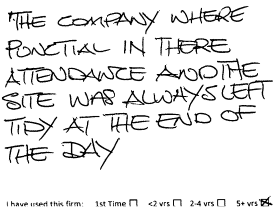 "THE COMPANY WHERE
PONCTIAL IN THERE
ATTENDANCE AND THE
SITE WAS ALWAYS LEFT
TIDY AT THE END OF
THE DAY
I have used this firm: 1st Time ☐ <2 yrs ☐ 2-4 yrs ☐ 5+ yrs ☒